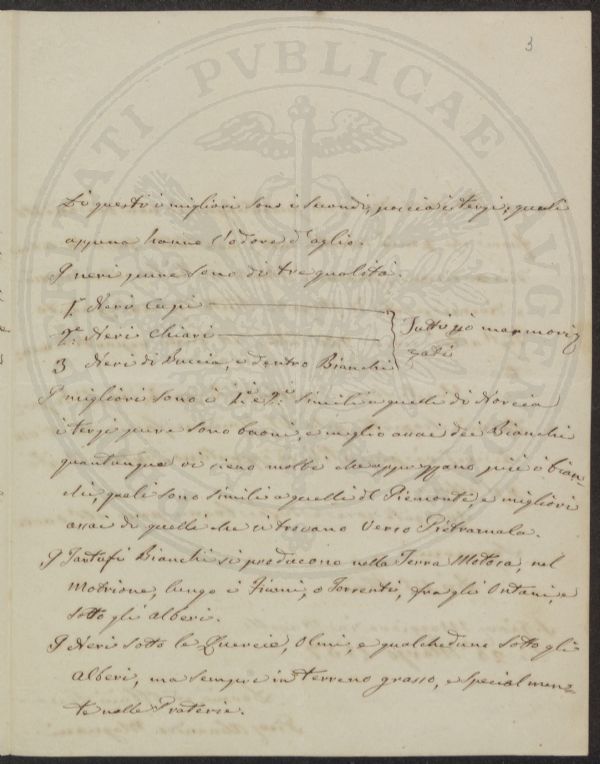 3
VTILITATI PVBLICAE AVGENDAE
Di questi i migliori sono i secondi, poscia i terzi, quali
appena hanno l'odore d'aglio.
I neri pure sono di tre qualità.
1.° Neri Cupi
2.° Neri Chiari
3 Neri di Buccia, e dentro Bianchi
Tutti più marmoriz
zati
I migliori sono i 1.i e 2.i simili a quelli di Norcia
i terzi pure sono buoni, e meglio assai dei Bianchi
quantunque vi sieno molti che apprezzano più i bian-
chi, quali sono simili a quelli del Piemonte, e migliori
assai di quelli che si trovano verso Pietramala.
I Tartufi Bianchi si producono nella Terra Motosa, nel
Motrione, lungo i Fiumi, o Torrenti, fra gli Ontani, e
sotto gli Alberi.
I Neri sotto le Quercie, Olmi, e qualcheduno sotto gli
Alberi, ma sempre in terreno grasso, e specialmen-
te nelle Praterie.